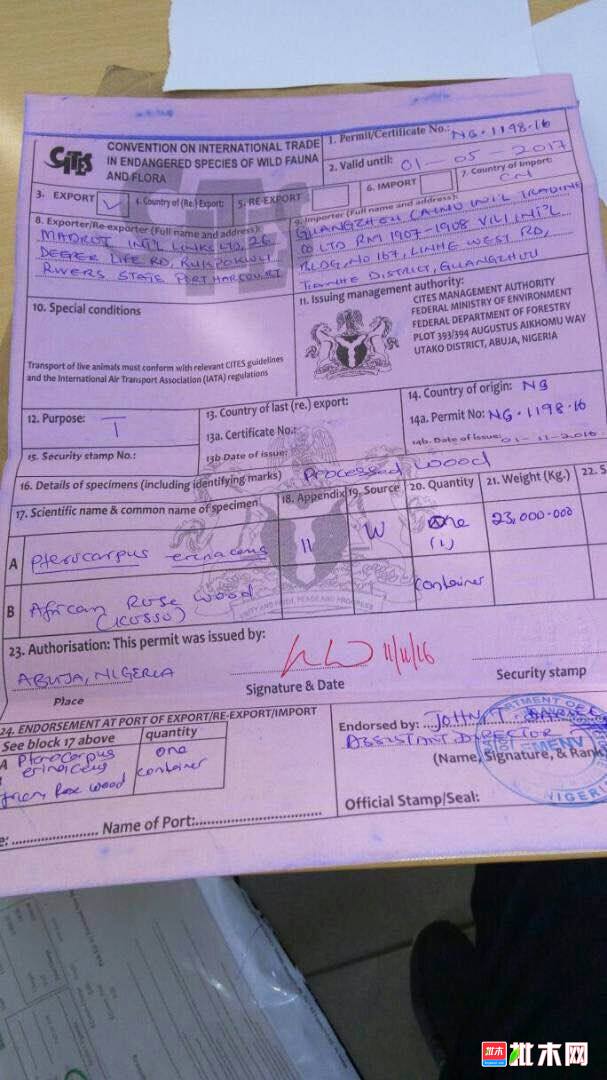 CITES
CONVENTION ON INTERNATIONAL TRADE
IN ENDANGERED SPECIES OF WILD FAUNA
AND FLORA
1. Permit/Certificate No.: NG.1198.16
2. Valid until: 01-05-2017
3. EXPORT
4. Country of (Re.) Export:
5. RE-EXPORT
6. IMPORT
7. Country of Import:
CN
8. Exporter/Re-exporter (Full name and address):
INT'L LINKS LTD, 26
DEEPER LIFE RD,
RIVERS STATE PORT HARCOURT
9. Importer (Full name and address):
GUANGZHOU CAIMU INT'L TRADING
CO LTD RM 1907-1908 VILI INT'L
BLDG, NO 167, LINHE WEST RD,
TIANHE DISTRICT, GUANGZHOU
10. Special conditions
Transport of live animals must conform with relevant CITES guidelines
and the International Air Transport Association (IATA) regulations
11. Issuing management authority:
CITES MANAGEMENT AUTHORITY
FEDERAL MINISTRY OF ENVIRONMENT
FEDERAL DEPARTMENT OF FORESTRY
PLOT 393/394 AUGUSTUS AIKHOMU WAY
UTAKO DISTRICT, ABUJA, NIGERIA
12. Purpose:
T
13. Country of last (re.) export:
13a. Certificate No.:
13b Date of issue:
14. Country of origin: NG
14a. Permit No: NG.1198.16
14b. Date of issue: 01-11-2016
15. Security stamp No.:
16. Details of specimens (including identifying marks) Processed Wood
17. Scientific name & common name of specimen
18. Appendix
19. Source
20. Quantity
21. Weight (Kg.)
22. S
A Pterocarpus erinaceus
II
W
One
(1)
container
23,000.000
B African Rose wood
(KOSSO)
23. Authorisation: This permit was issued by:
ABUJA, NIGERIA
Place
11/11/16
Signature & Date
Security stamp
24. ENDORSEMENT AT PORT OF EXPORT/RE-EXPORT/IMPORT
See block 17 above
quantity
A Pterocarpus
erinaceus
one
container
Rose wood
Endorsed by: JOHN T.
ASSISTANT DIRECTOR
(Name, Signature, & Rank
Official Stamp/Seal:
NIGERI
Name of Port:
批木 批木网